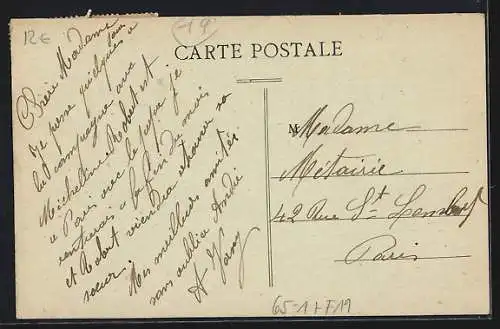 12€
-14
CARTE POSTALE
Chère Madame
Je passe quelques jours à
la campagne avec
Micheline Robert est
à Paris avec le
la fin du mois
et Robert viendra chercher sa
sœur.
Mes meilleures amitiés
sans oublier André
A
M Madame
Métairie
42 Rue St
Paris
65-1+F19